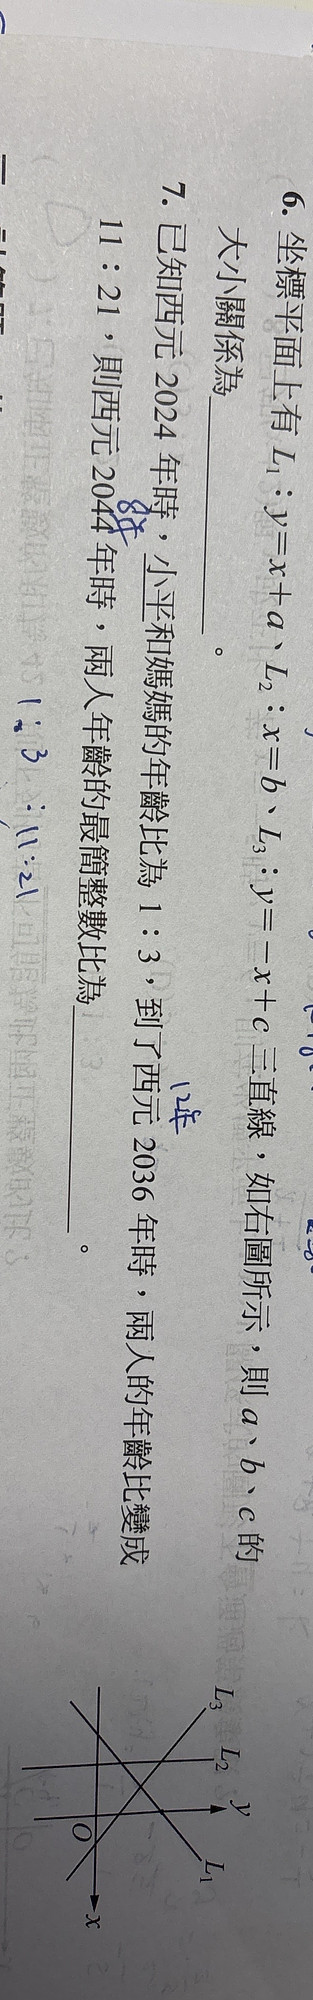 6. 坐標平面上有 L₁：y=x+a、L₂：x=b、L₃：y=−x+c 三直線，如右圖所示，則 a、b、c 的
大小關係為＿＿＿＿＿＿。
L₃ L₂ y L₁
O x
7. 已知西元 2024 年時，小平和媽媽的年齡比為 1：3，到了西元 2036 年時，兩人的年齡比變成
12年
11：21，則西元 2044 年時，兩人年齡的最簡整數比為＿＿＿＿＿＿。
8年
1：3 ：11：21